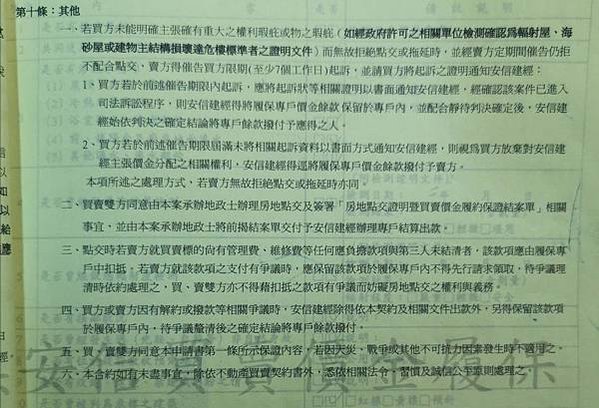 第十條：其他
一、若買方未能明確主張確有重大之權利瑕疵或物之瑕疵（如經政府許可之相關單位檢測確認為輻射屋、海
砂屋或建物主結構損壞達危樓標準者之證明文件）而無故拒絕點交或拖延時，並經賣方定期間催告仍拒
不配合點交，賣方得催告買方限期(至少7個工作日)起訴，並請買方將起訴之證明通知安信建經：
1、買方若於前述催告期限內起訴，應將起訴狀等相關證明以書面通知安信建經，經確認該案件已進入
司法訴訟程序，則安信建經得將履保專戶價金餘款保留於專戶內，並配合靜待判決確定後，安信建
經始依判決之確定結論將專戶餘款撥付予應得之人。
2、買方若於前述催告期限屆滿未將相關起訴資料以書面方式通知安信建經，則視為買方放棄對安信建
經主張價金分配之相關權利，安信建經得逕將履保專戶價金餘款撥付予賣方。
本項所述之處理方式，若賣方無故拒絕點交或拖延時亦同。
二、買賣雙方同意由本案承辦地政士辦理房地點交及簽署「房地點交證明暨買賣價金履約保證結案單」相關
事宜，並由本案承辦地政士將前揭結案單交付安信建經辦理專戶結算出款。
三、點交時若賣方就買賣標的尚有管理費、維修費等任何應負擔款項與第三人未結清者，該款項應由履保專
戶中扣抵，若賣方就該款項之支付有爭議時，應保留該款項於履保專戶內不得先行請求領取，待爭議理
清時依約處理之，買、賣雙方亦不得藉扣抵之款項有爭議而妨礙房地點交之權利與義務。
四、買方或賣方因有解約或撥款等相關爭議時，安信建經除得依本契約及相關文件出款外，另得保留該款項
於履保專戶內，待爭議釐清後之確定結論將專戶餘款撥付。
五、買、賣雙方同意本申請書第一條所示保證內容，若因天災、戰爭或其他不可抗力因素發生時不適用之。
六、本合約如有未盡事宜，除依不動產買賣契約書外，悉依相關法令、習慣及誠信公平原則處理之。
安信買賣價金履保